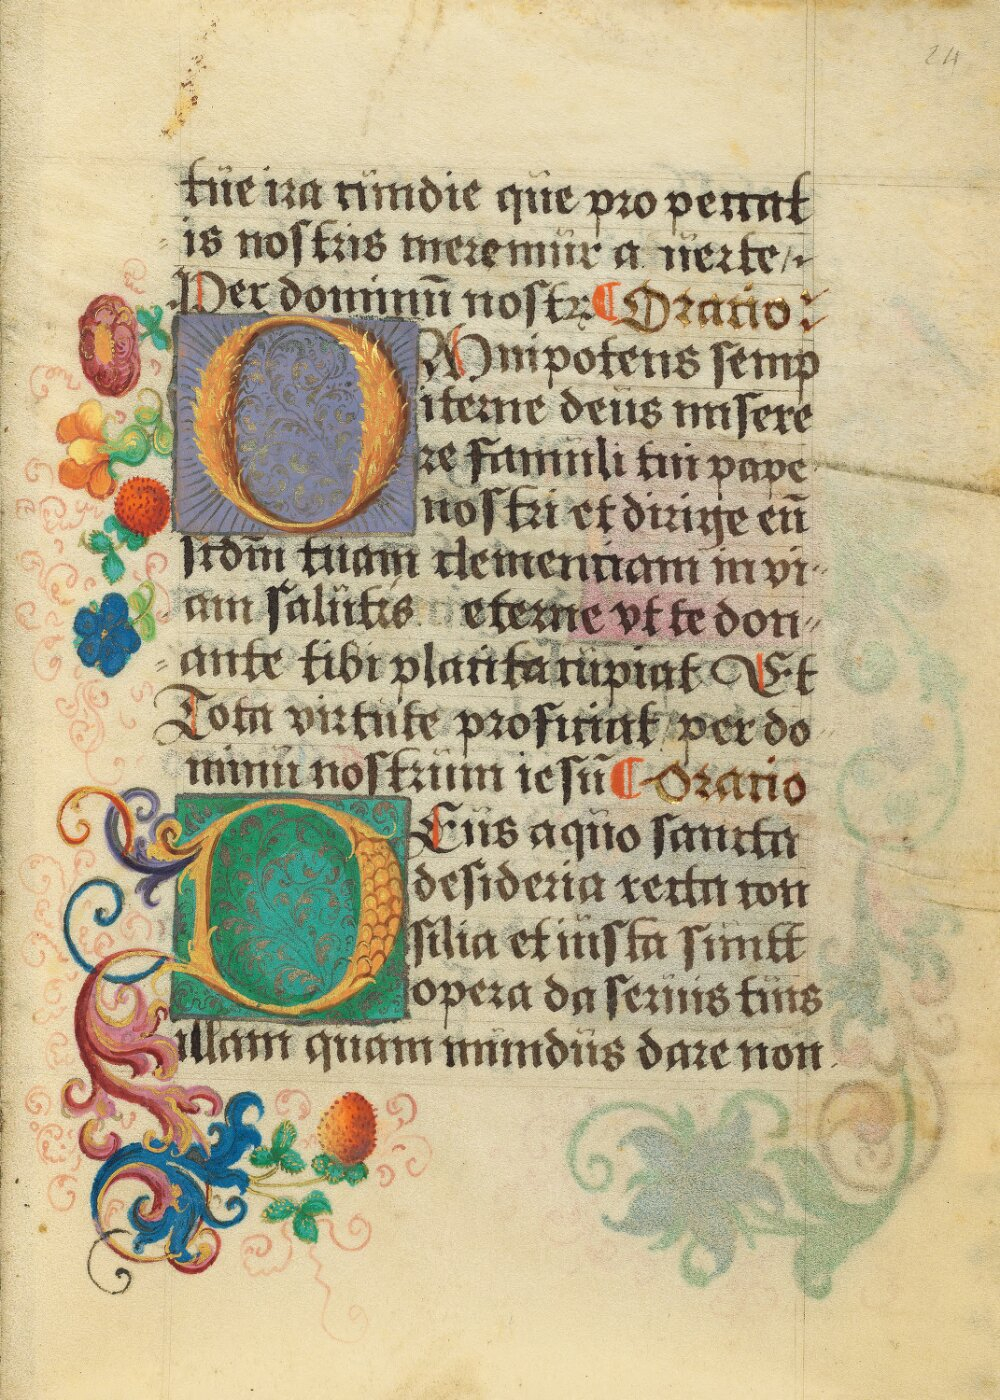 24
tüe ira cundie qüe pro peccat
is nostris meremür a üerte
Per dominuü nostr Oratio
O Mnipotens semp
iterne deüs misere
re famuli tui pape
nostri et dirige eū
scdm̄ tuam clementiam in vi
am salütis eterne vt te don
ante tibi placita cüpiat Et
Tota virtüte proficiat per do
minü nostrüm iesū Oratio
D Eüs a qüo sancta
desideria recta con
silia et iüsta süntt
opera da serüis tüis
illam quam mündüs dare non